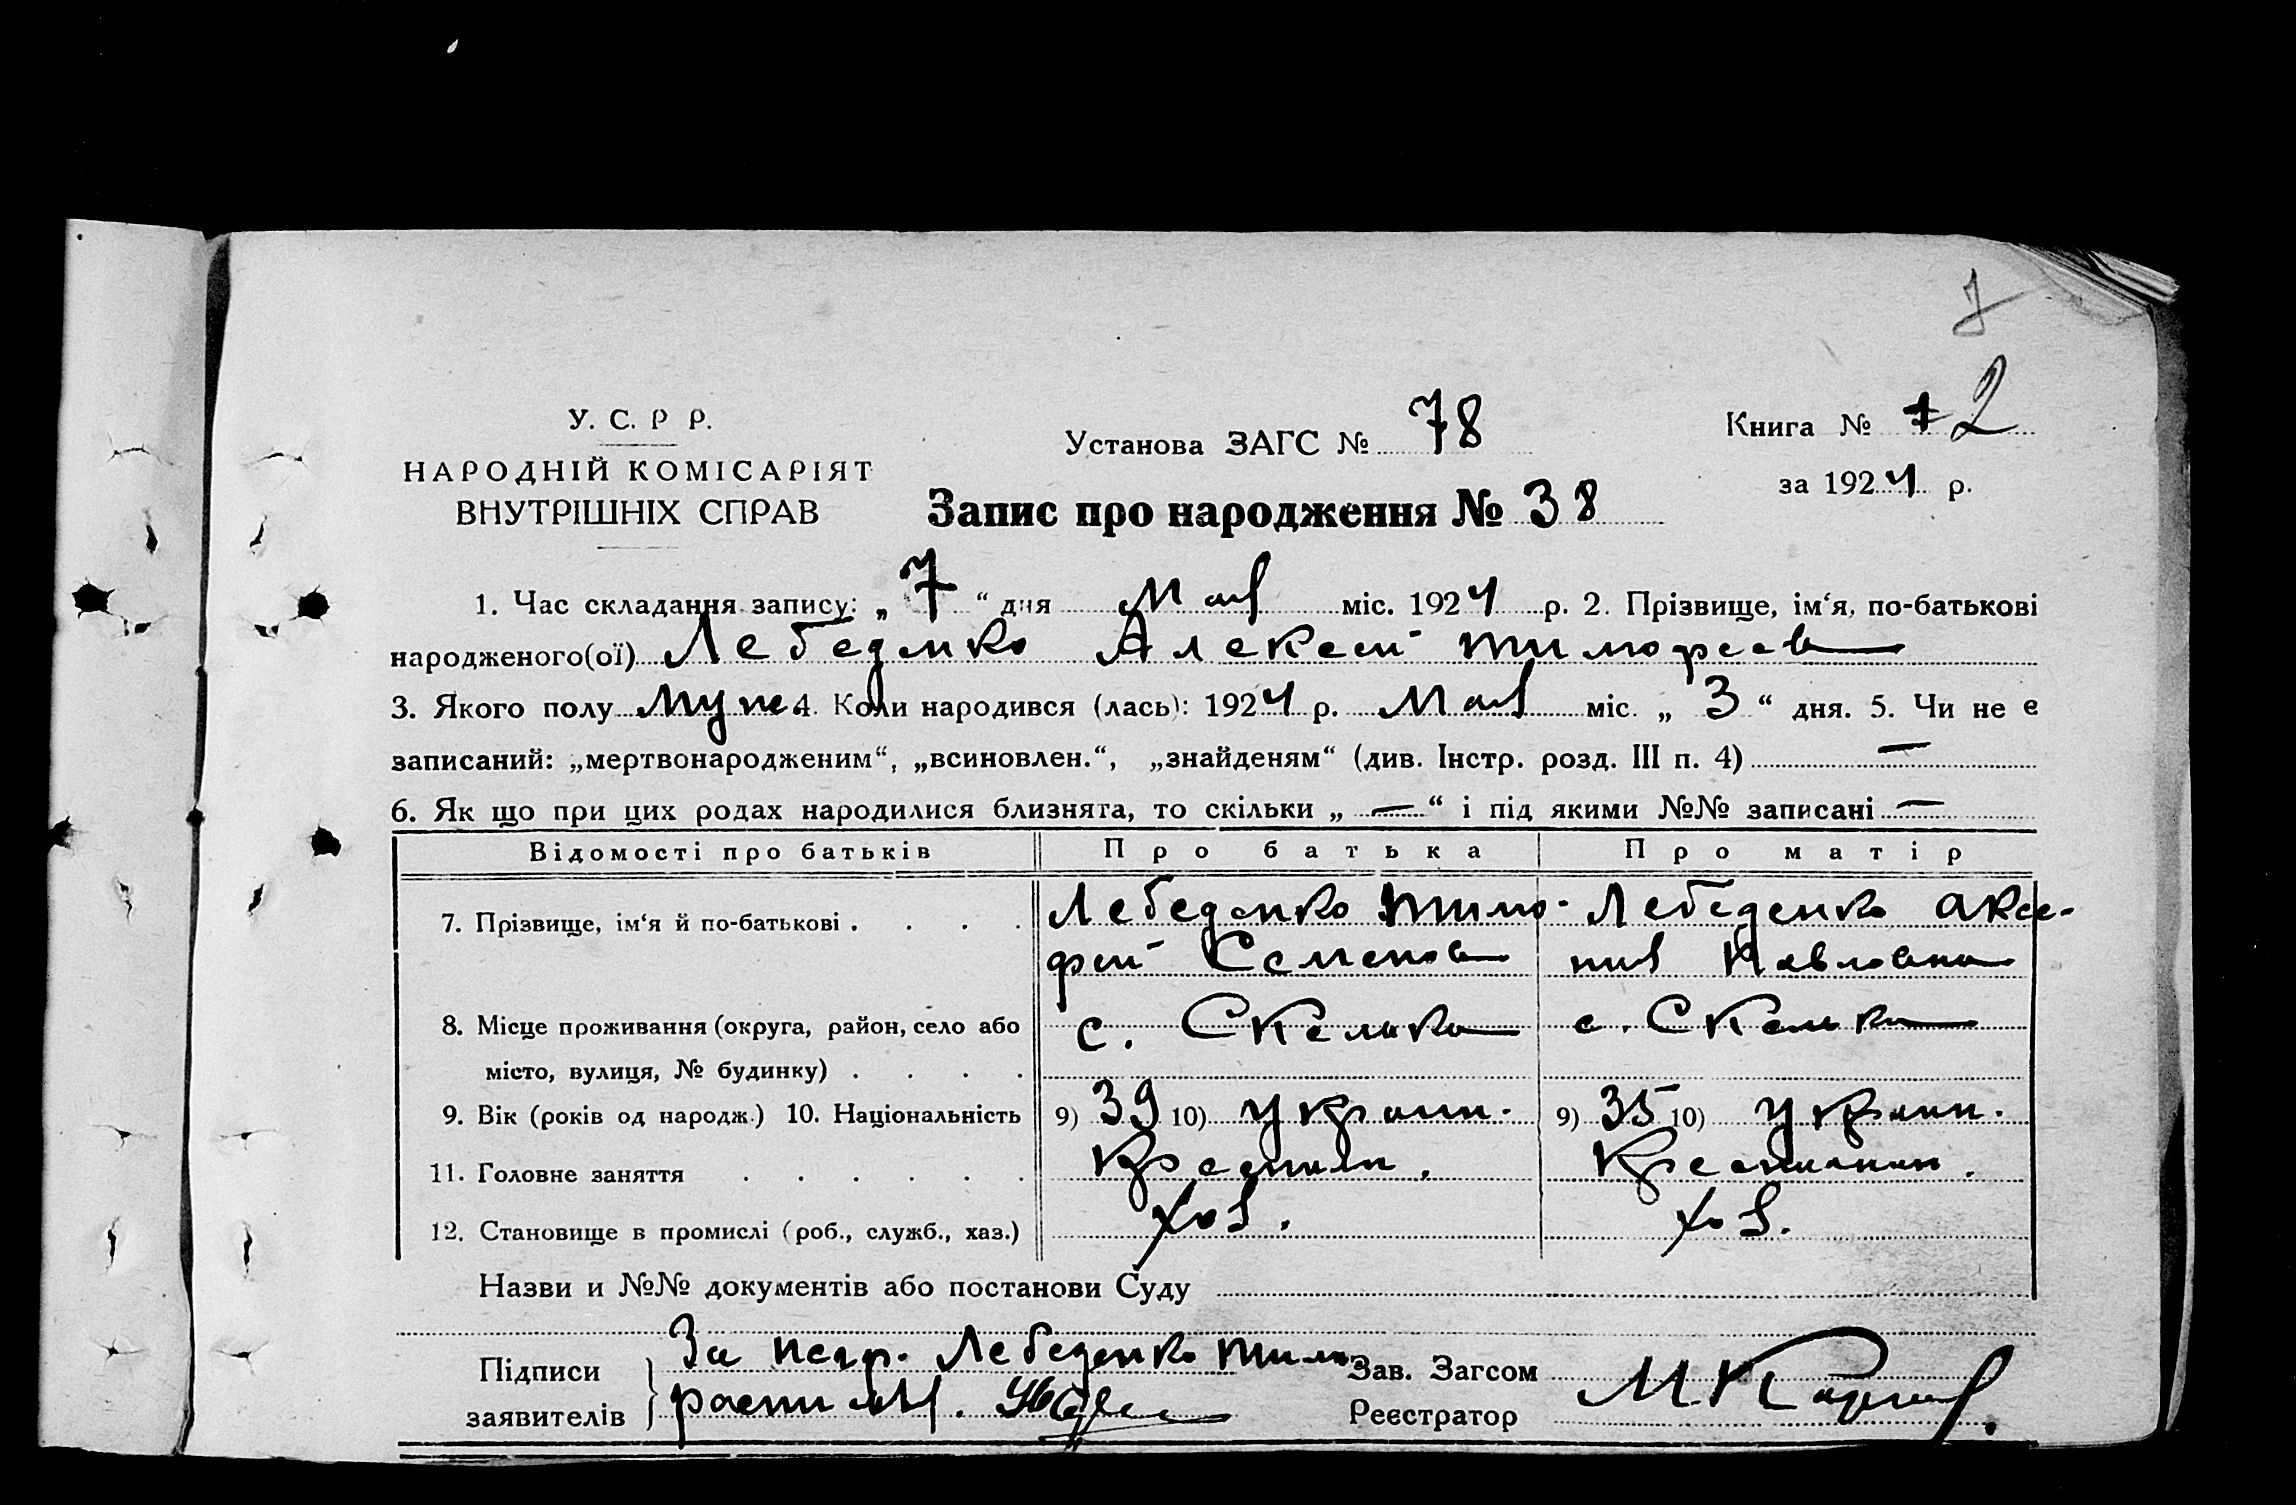 У. С. Р Р.
НАРОДНІЙ КОМІСАРІЯТ
ВНУТРІШНІХ СПРАВ
Установа ЗАГС № 78
Книга № 2
за 1924 р.
Запис про народження № 38
1. Час складання запису: „ 7 “ дня Мая міс. 1924 р. 2. Прізвище, ім‘я, по-батькові
народженого(ої) Лебеденко Алексей Тимофеев
3. Якого полу муж. 4. Коли народився (лась): 1924 р. Мая міс. „ 3 “ дня. 5. Чи не є
записаний: „мертвонародженим“, „всиновлен.“, „знайденям“ (див. Інстр. розд. III п. 4) —
6. Як що при цих родах народилися близнята, то скільки „ — “ і під якими №№ записані —
Відомості про батьків Про батька Про матір
7. Прізвище, ім‘я й по-батькові . . . . Лебеденко Тимо- Лебеденко Аксе-
фей Семенов ния Павловна
8. Місце проживання (округа, район, село або с. Скелька с. Скелька
місто, вулиця, № будинку) . . . .
9. Вік (років од народж.) 10. Національність 9) 39 10) украин. 9) 35 10) украин.
11. Головне заняття . . . . . . Крестьян. Крестьянин.
12. Становище в промислі (роб., служб., хаз.) хоз. хоз.
Назви и №№ документів або постанови Суду
Підписи За негр. Лебеденко Тимо Зав. Загсом
заявителів Реєстратор